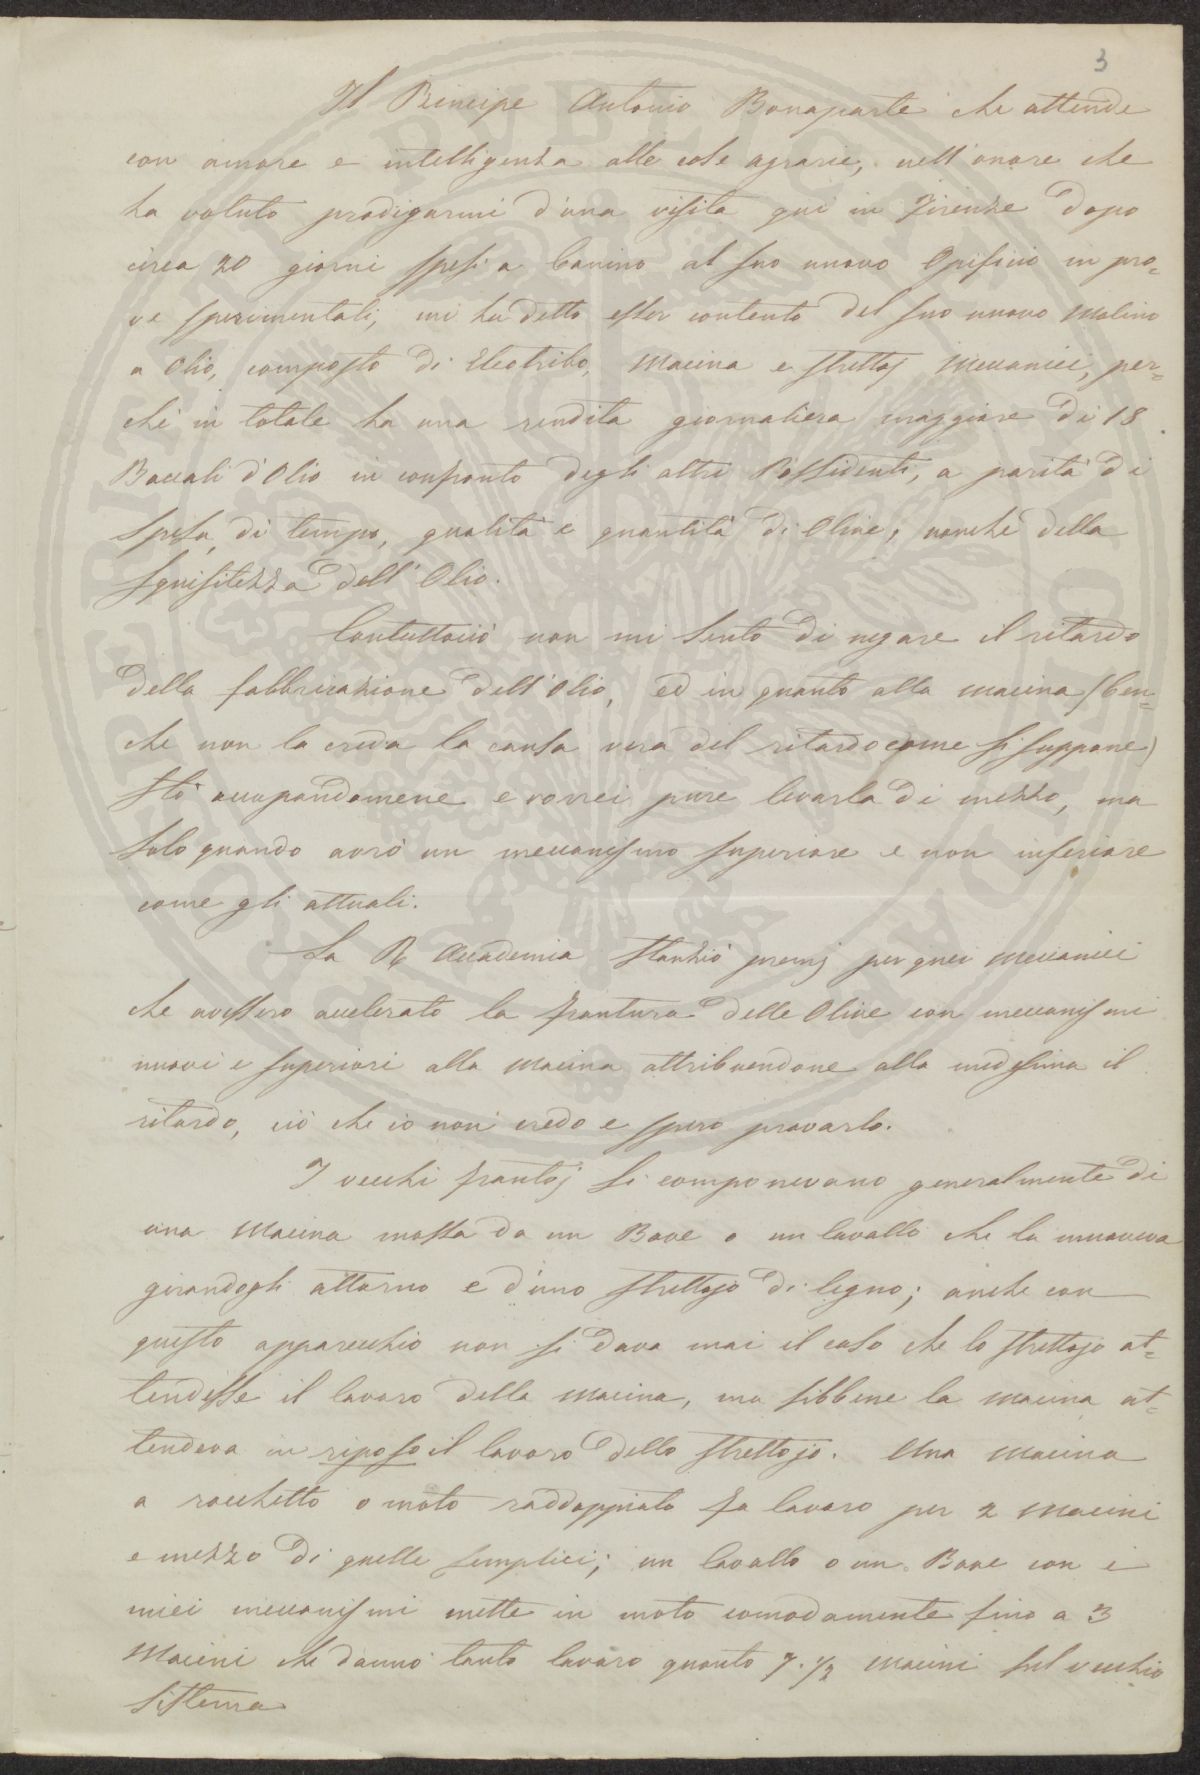 3
Il Principe Antonio Bonaparte che attende
con amore e intelligenza alle cose agrarie, nell'onore che
ha voluto prodigarmi d'una visita qui in Firenze dopo
circa 20 giorni spesi a Canino al suo nuovo Opificio in pro=
ve sperimentali, mi ha detto esser contento del suo nuovo Molino
a Olio, composto di Eleotribo, Macina e strettoj Meccanici, per=
chè in totale ha una rendita giornaliera maggiore di 18
Boccali d'Olio in confronto degli altri Possidenti, a parità di
spesa, di tempo, qualità e quantità di Olive, nonchè della
squisitezza dell'Olio.
Contuttociò non mi sento di negare il ritardo
della fabbricazione dell'Olio, ed in quanto alla macina (ben=
che non la creda la causa vera del ritardo come si suppone)
stò occupandomene e vorrei pure levarla di mezzo, ma
solo quando avrò un meccanismo superiore e non inferiore
come gli attuali.
La R. Accademia stanziò premj per quei Meccanici
che avessero accelerato la frantura delle Olive con meccanismi
nuovi e superiori alla Macina attribuendone alla medesima il
ritardo, ciò che io non credo e spero provarlo.
I vecchi frantoj si componevano generalmente di
una Macina mossa da un Bove o un Cavallo che la muoveva
girandogli attorno e d'uno strettojo di legno; anche con
questo apparecchio non si dava mai il caso che lo strettojo at=
tendesse il lavoro della Macina, ma sibbene la Macina at=
tendeva in riposo il lavoro dello strettojo. Una Macina
a rocchetto o moto raddoppiato fa lavoro per 2 Macini
e mezzo di quelle semplici; un Cavallo o un Bove con i
miei meccanismi mette in moto comodamente fino a 3
Macini che danno tanto lavoro quanto 7. 1/2 Macini sul vecchio
sistema